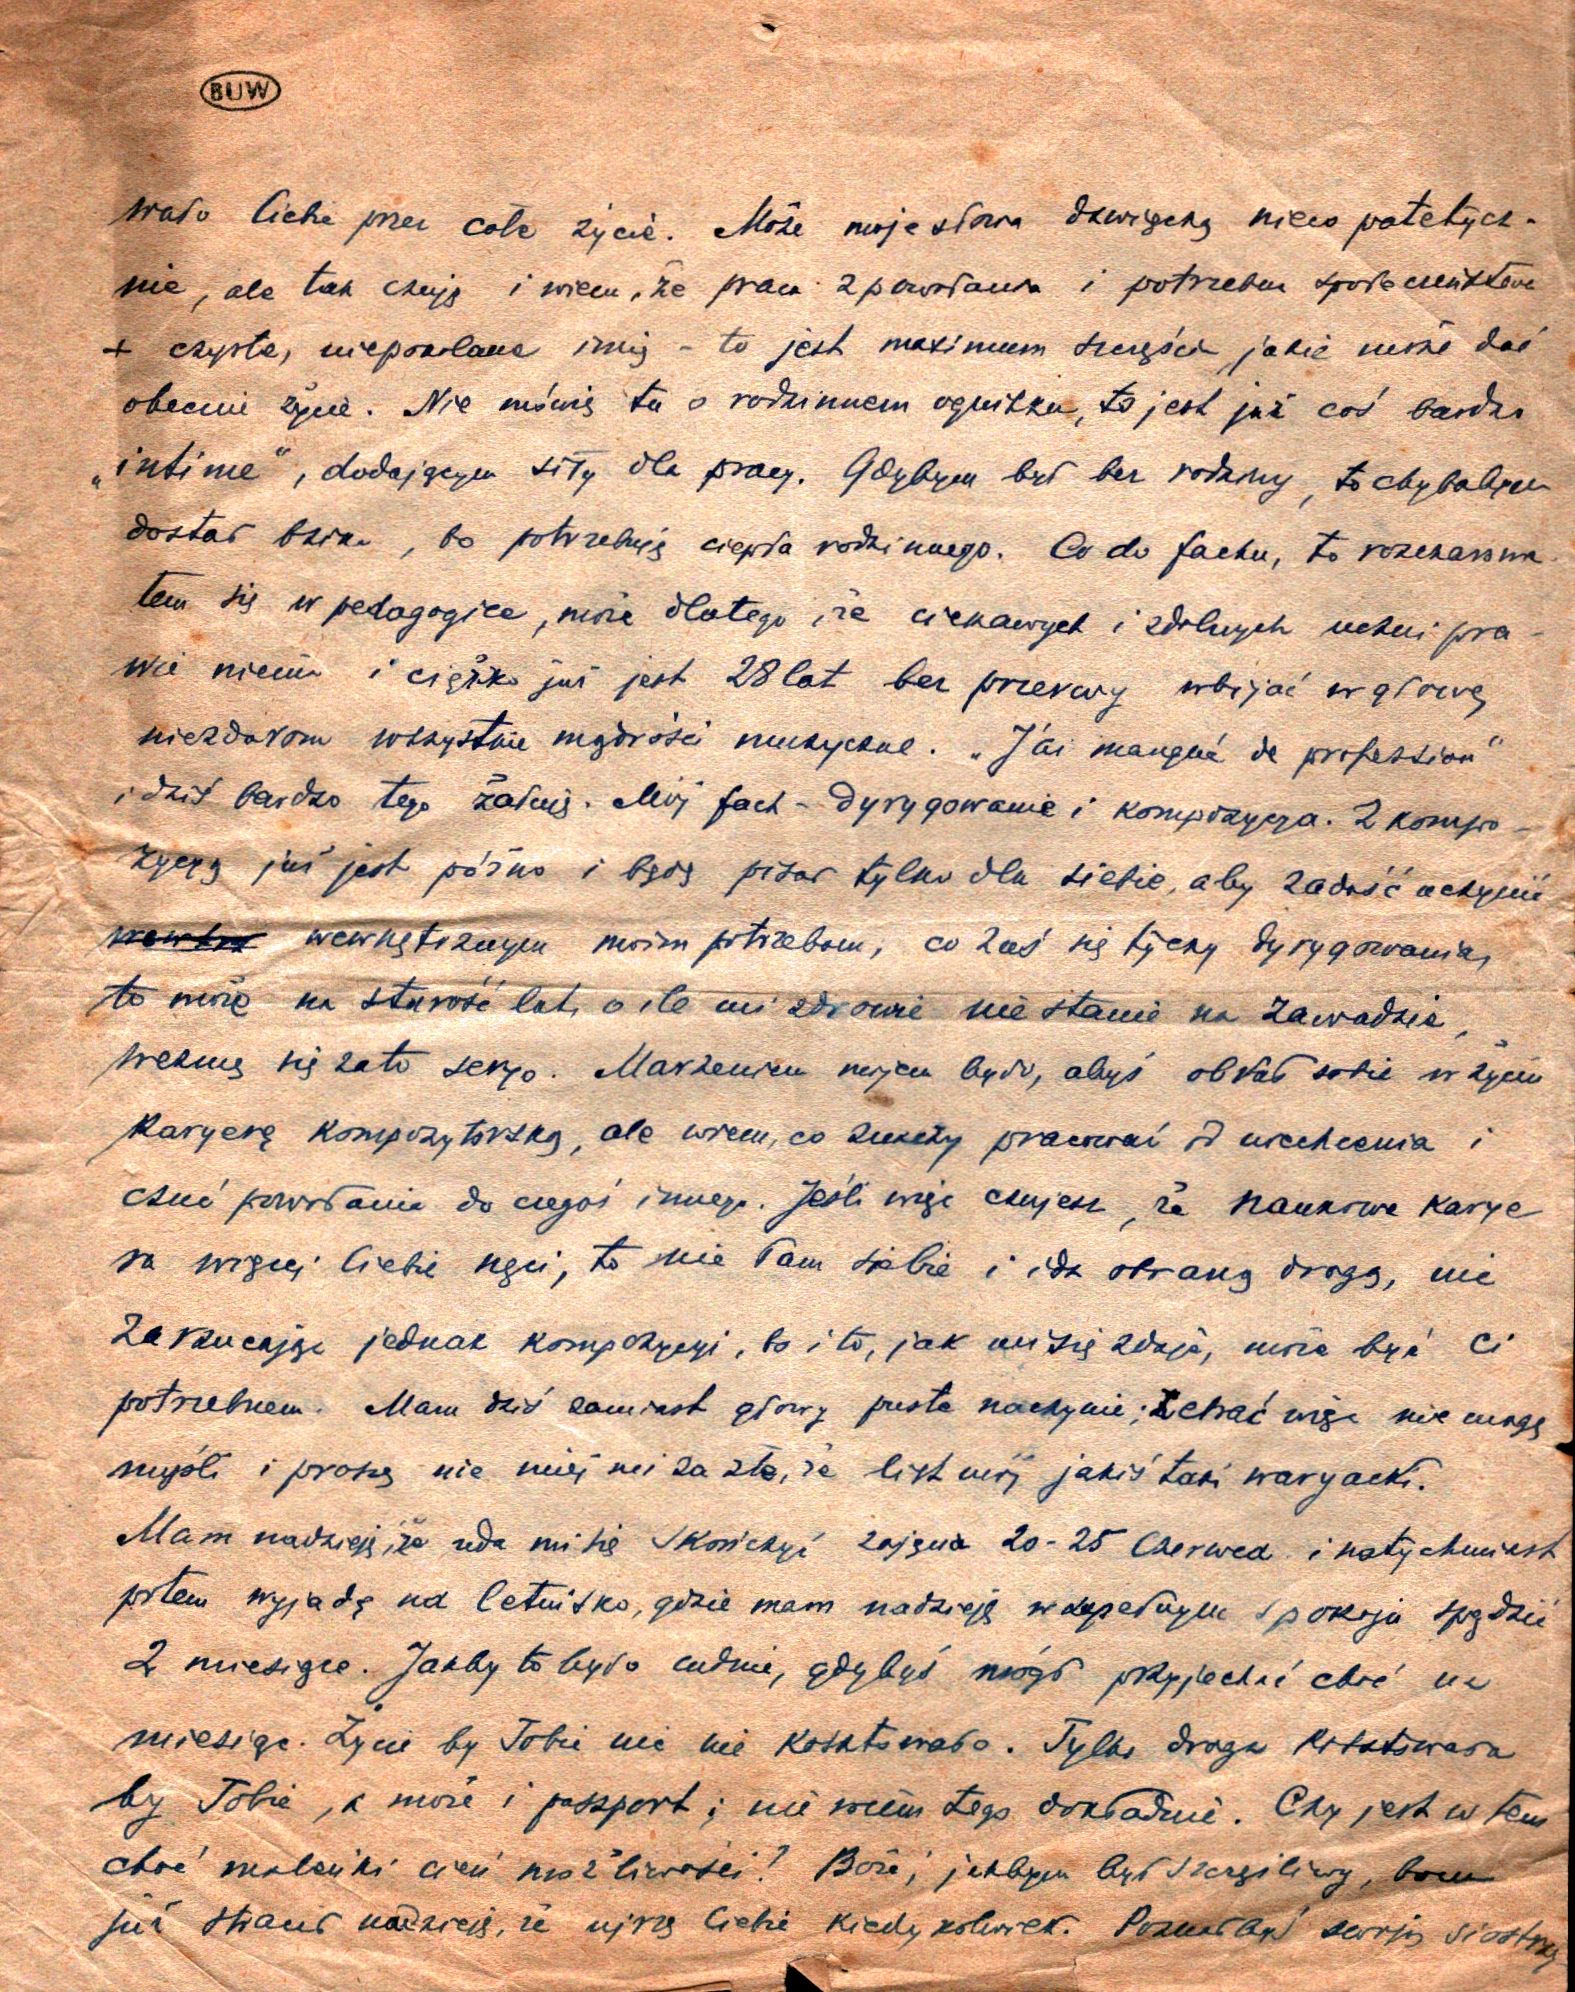 BUW
wało Ciebie przez całe życie. Może moje słowa dźwięczą nieco patetycz-
nie, ale tak czuję i wiem, że praca z powołania i potrzebna społeczeństwu
+ czyste, niepokalane imię - to jest maximum szczęścia jakie może dać
obecnie życie. Nie mówię tu o rodzinnem ognisku, to jest już coś bardzo
„intime", dodającym siły dla pracy. Gdybym był bez rodziny, to chybabym
dostał bzika, bo potrzebuję ciepła rodzinnego. Co do fachu, to rozczarowa-
łem się w pedagogice, może dlatego, że ciekawych i zdolnych uczni pra-
wie niema i ciężko już jest 28 lat bez przerwy wbijać w głowę
niezdarom wszystkie mądrości muzyczne. „J'ai manqué de profession"
i dziś bardzo tego żałuję. Mój fach - dyrygowanie i kompozycya. Z kompo-
zycyą już jest późno i będę pisał tylko dla siebie, aby zadość uczynić
wewnętrznym moim potrzebom, co zaś się tyczy dyrygowania,
to może na starość lat, o ile mi zdrowie nie stanie na zawadzie,
wezmę się za to seryo. Marzeniem mojem było, abyś obrał sobie w życiu
karyerę kompozytorską, ale wiem, co znaczy pracować od niechcenia i
czuć powołanie do czegoś innego. Jeśli więc czujesz, że naukowa karye
ra więcej Ciebie nęci, to nie łam siebie i idź obraną drogą, nie
zarzucając jednak kompozycyi, bo i to, jak mi się zdaje, może być Ci
potrzebnem. Mam dziś zamiast głowy puste naczynie; zebrać więc nie mogę
myśli i proszę nie miej mi za złe, że list mój jakiś taki waryacki.
Mam nadzieję, że uda mi się skończyć zajęcia 20-25 Czerwca i natychmiast
potem wyjadę na letnisko, gdzie mam nadzieję w zupełnym spokoju spędzić
2 miesiące. Jakby to było cudnie, gdybyś mógł przyjechać choć na
miesiąc. Życie by Tobie nic nie kosztowało. Tylko droga kosztowała
by Tobie, a może i paszport; nie wiem tego dokładnie. Czy jest w tem
choć maleńki cień możliwości? Boże, jakbym był szczęśliwy, bom
już stracił nadzieję, że ujrzę Ciebie kiedykolwiek. Poznałbyś swoją siostrzy